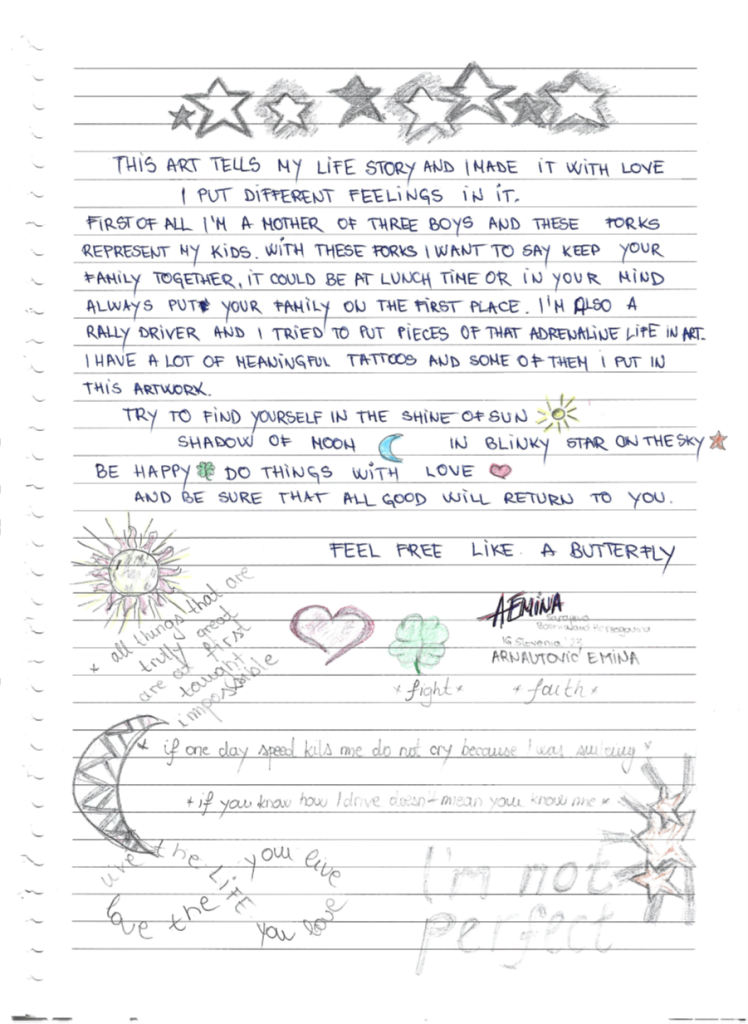 THIS ART TELLS MY LIFE STORY AND I MADE IT WITH LOVE
I PUT DIFFERENT FEELINGS IN IT.
FIRST OF ALL I'M A MOTHER OF THREE BOYS AND THESE FORKS
REPRESENT MY KIDS. WITH THESE FORKS I WANT TO SAY KEEP YOUR
FAMILY TOGETHER, IT COULD BE AT LUNCH TIME OR IN YOUR MIND
ALWAYS PUT YOUR FAMILY ON THE FIRST PLACE. I'M ALSO A
RALLY DRIVER AND I TRIED TO PUT PIECES OF THAT ADRENALINE LIFE IN ART.
I HAVE A LOT OF MEANINGFUL TATTOOS AND SOME OF THEM I PUT IN
THIS ARTWORK.
TRY TO FIND YOURSELF IN THE SHINE OF SUN
SHADOW OF MOON IN BLINKY STAR ON THE SKY
BE HAPPY DO THINGS WITH LOVE
AND BE SURE THAT ALL GOOD WILL RETURN TO YOU.
FEEL FREE LIKE A BUTTERFLY
* all things that are
trully great
are at first
tought
impossible
AEMINA
Sarajevo
Bosnia and Herzegovina
Slovenia '23
ARNAUTOVIĆ EMINA
* fight *
* faith *
* if one day speed kils me do not cry because I was smileing *
* if you know how I drive doesn't mean you know me *
live the LiFE you live
love the you love
I'm not
perfect